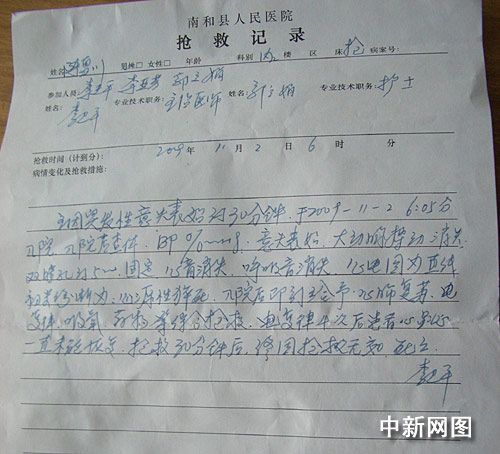 南和县人民医院
抢救记录
姓名 男性□ 女性□ 年龄 科别 内 楼 区 床 抢 病案号：
参加人员： 李 平 郭文娟
姓名： 专业技术职务： 主治医师 姓名： 郭文娟 专业技术职务： 护士
抢救时间（计到分）： 2009 年 11 月 2 日 6 时 分
病情变化及抢救措施：
主因突发性意识丧失约30分钟，于2009-11-2 6:05分
入院，入院后查体：BP 0/0mmHg，意识丧失，大动脉搏动消失，
双瞳孔约5mm，固定，心音消失，呼吸音消失，心电图为直线，
初步诊断为：心源性猝死，入院后即刻给予心肺复苏、电
复律、吸氧、药物等综合抢救，电复律 次后患者心电
一直未能恢复，抢救30分钟后，终因抢救无效死亡。
李 平
中新网图